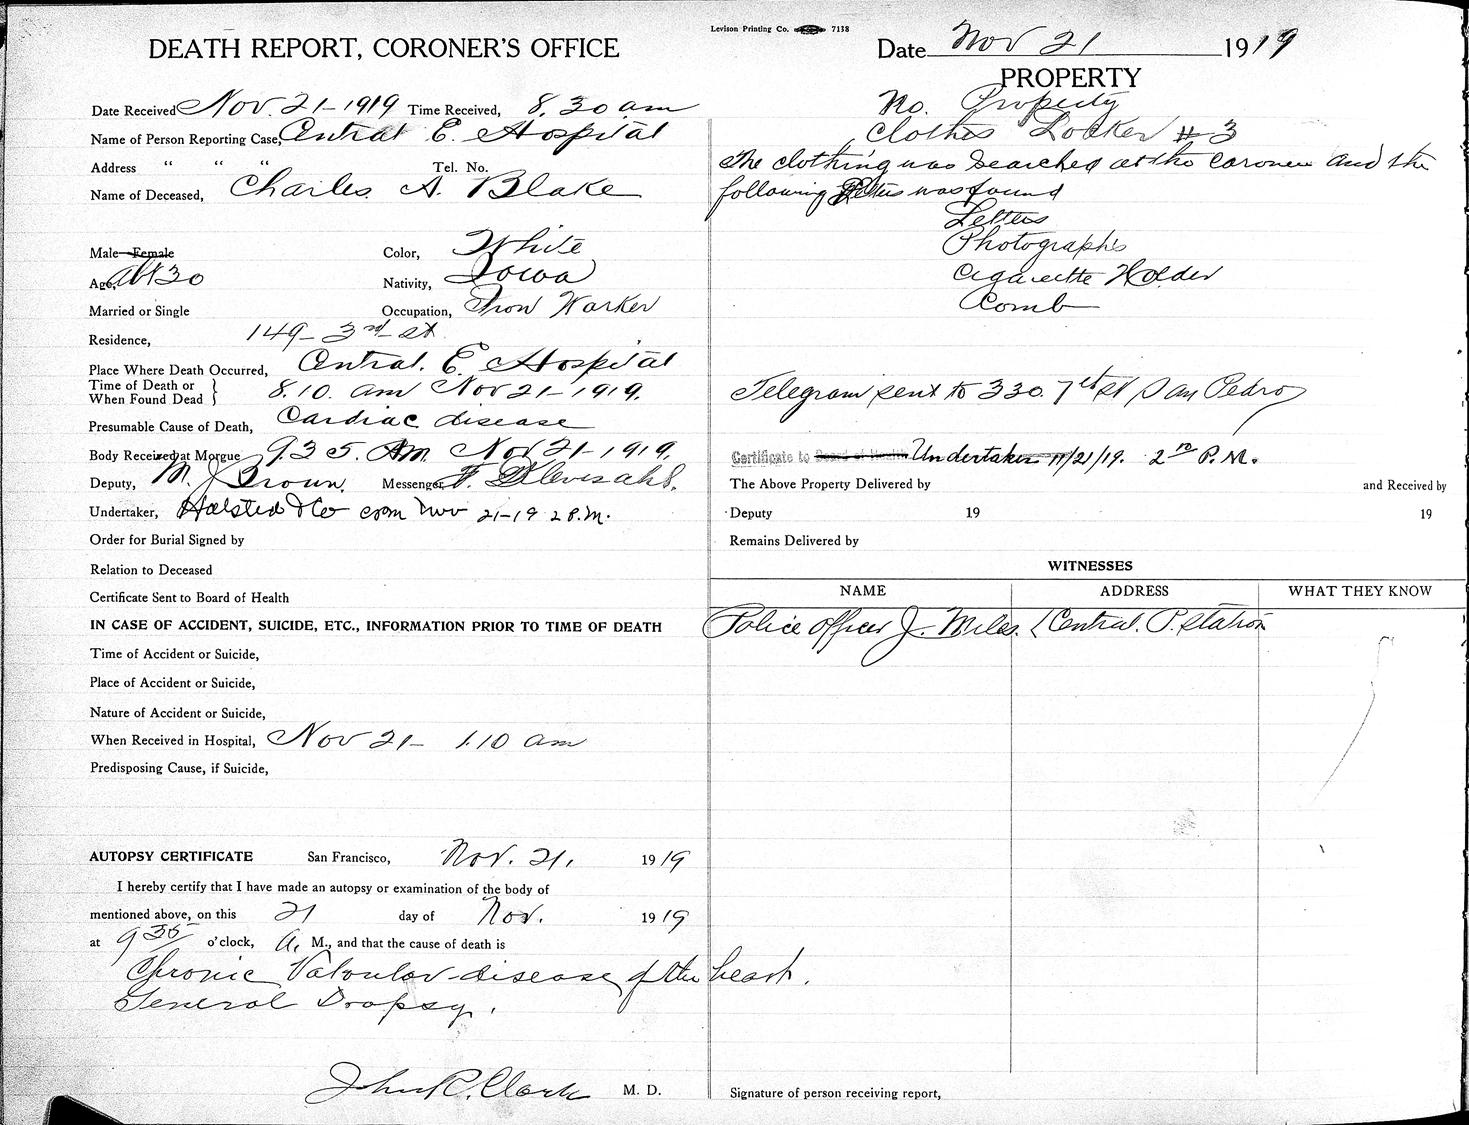 Levison Printing Co. 7138
DEATH REPORT, CORONER'S OFFICE
Date Received Nov. 21-1919 Time Received, 8.30 am
Name of Person Reporting Case, Central E. Hospital
Address " " " Tel. No.
Name of Deceased, Charles A. Blake
Male Female Color, White
Age, abt 30 Nativity, Iowa
Married or Single Occupation, Iron Worker
Residence, 149-3rd st
Place Where Death Occurred, Central. E. Hospital
Time of Death or
When Found Dead } 8.10. am Nov 21-1919.
Presumable Cause of Death, Cardiac disease
Body Received at Morgue 9.35. Am. Nov 21-1919.
Deputy, M. J. Brown. Messenger, F.
Undertaker, Halsted & Co Nov 21-19 2 P.M.
Order for Burial Signed by
Relation to Deceased
Certificate Sent to Board of Health
IN CASE OF ACCIDENT, SUICIDE, ETC., INFORMATION PRIOR TO TIME OF DEATH
Time of Accident or Suicide,
Place of Accident or Suicide,
Nature of Accident or Suicide,
When Received in Hospital, Nov 21- 1.10 am
Predisposing Cause, if Suicide,
AUTOPSY CERTIFICATE San Francisco, Nov. 21, 1919
I hereby certify that I have made an autopsy or examination of the body of
mentioned above, on this 21 day of Nov. 1919
at 9 35 o'clock, A. M., and that the cause of death is
Chronic Valvular disease of the heart.
General Dropsy.
John R. Clark M. D.
Date Nov 21 1919
PROPERTY
No. Property
Clothes Locker #3
The clothing was searched at the coroner and the
following was found
Letters
Photographs
Cigarette Holder
Comb
Telegram sent to 330. 7th st San Pedro
Certificate to Board of Health Undertaker 11/21/19. 2 P.M.
The Above Property Delivered by and Received by
Deputy 19 19
Remains Delivered by
WITNESSES
NAME ADDRESS WHAT THEY KNOW
Police officer J. Miles. Central. P. Station
Signature of person receiving report,